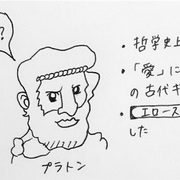 ?
・哲学史上
・「愛」に
の古代ギ
エロース
した
プラトン